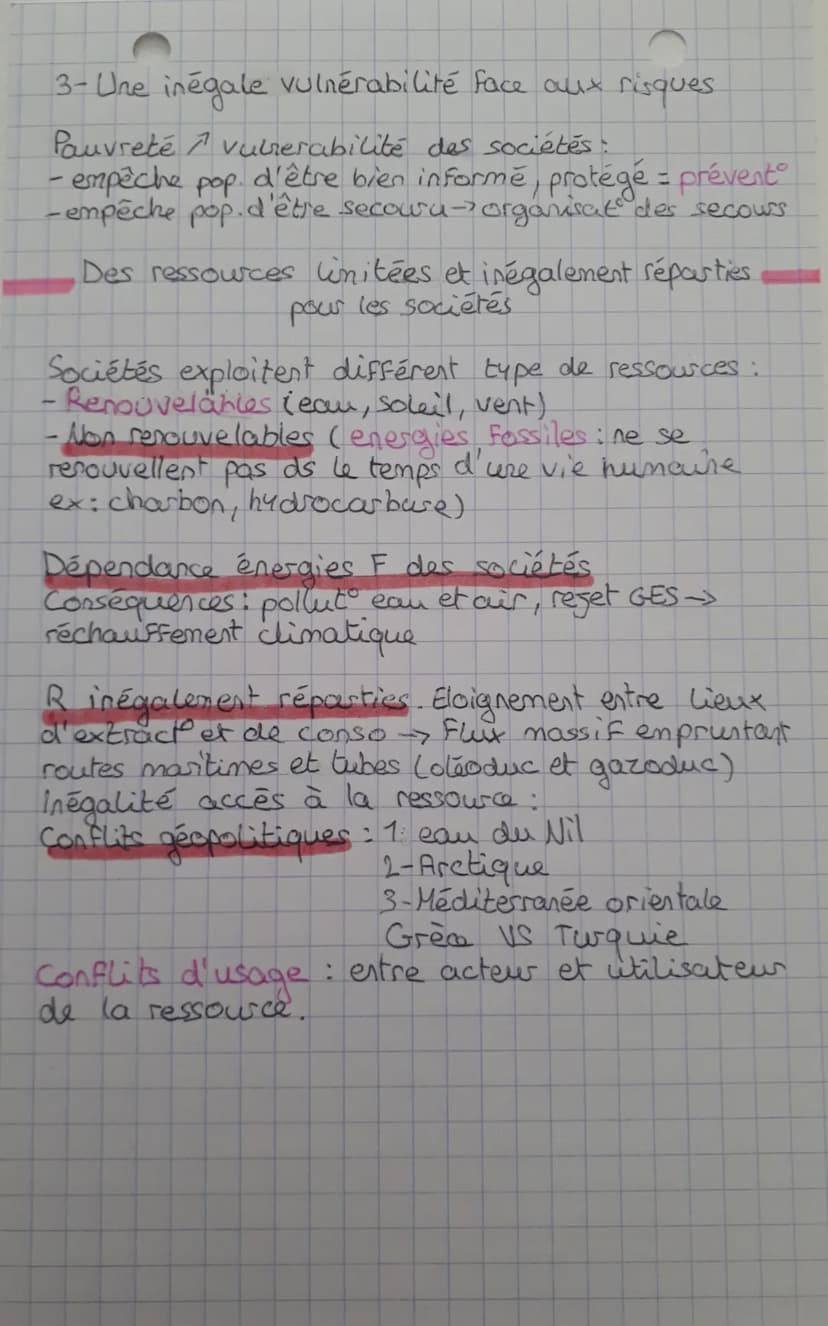 3- Une inégale vulnérabilité face aux risques
Pauvreté ↗ vulnerabilité des sociétés :
- empêche pop. d'être bien informé, protégé = prévent°
- empêche pop. d'être secouru → organisat° des secours
Des ressources limitées et inégalement réparties
pour les sociétés
Sociétés exploitent différent type de ressources :
- Renouvelables (eau, soleil, vent)
- Non renouvelables (energies fossiles : ne se
renouvellent pas ds le temps d'une vie humaine
ex : charbon, hydrocarbure)
Dépendance énergies F des sociétés
Conséquences : pollut° eau et air, rejet GES →
réchauffement climatique
R inégalement réparties. Eloignement entre lieux
d'extract° et de conso → Flux massif empruntant
routes maritimes et tubes (oléoduc et gazoduc)
Inégalité accès à la ressource :
Conflits géopolitiques : 1: eau du Nil
2- Arctique
3- Méditerranée orientale
Grèce VS Turquie
Conflits d'usage : entre acteur et utilisateur
de la ressource.